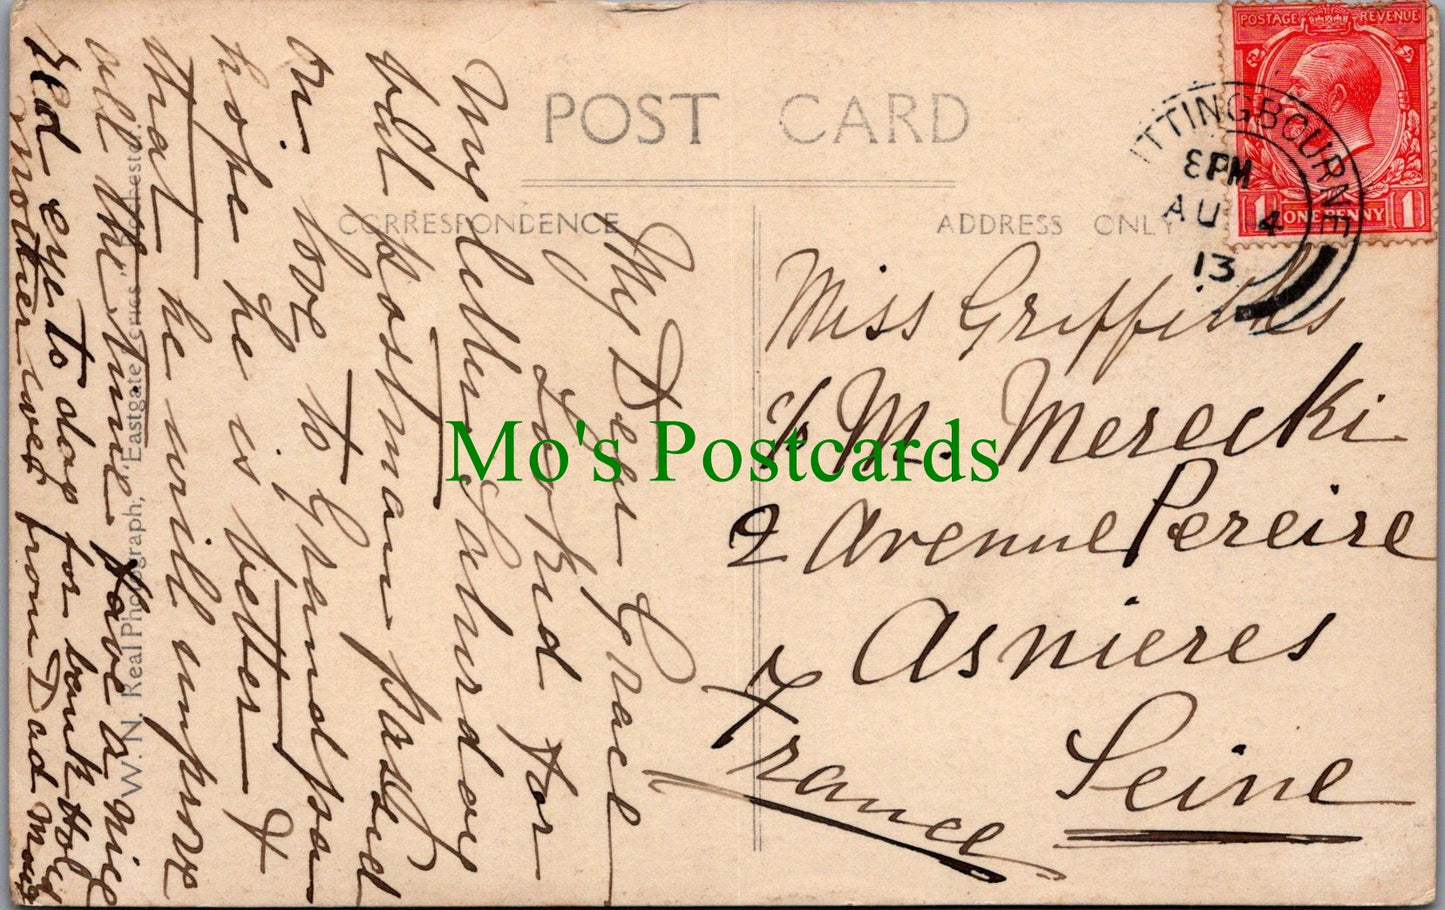 POST CARD
CORRESPONDENCE
ADDRESS ONLY
POSTAGE REVENUE
1 ONE PENNY 1
ITTINGBOURNE
8 PM
AU 4
13
Miss Griffiths
c/o M. Merecki
2 Avenue Pereire
Asnieres
Seine
France
My Dear Grace
Looked for
My letter Saturday
but postman passed
on. love to Grandpa
hope he is better &
that he will improve
all the time have a nice
Red eye to day for bank Hol
Mother love from Dad
W. N. Real Photograph, "Eastgate Series" Rochester.
Mo's Postcards